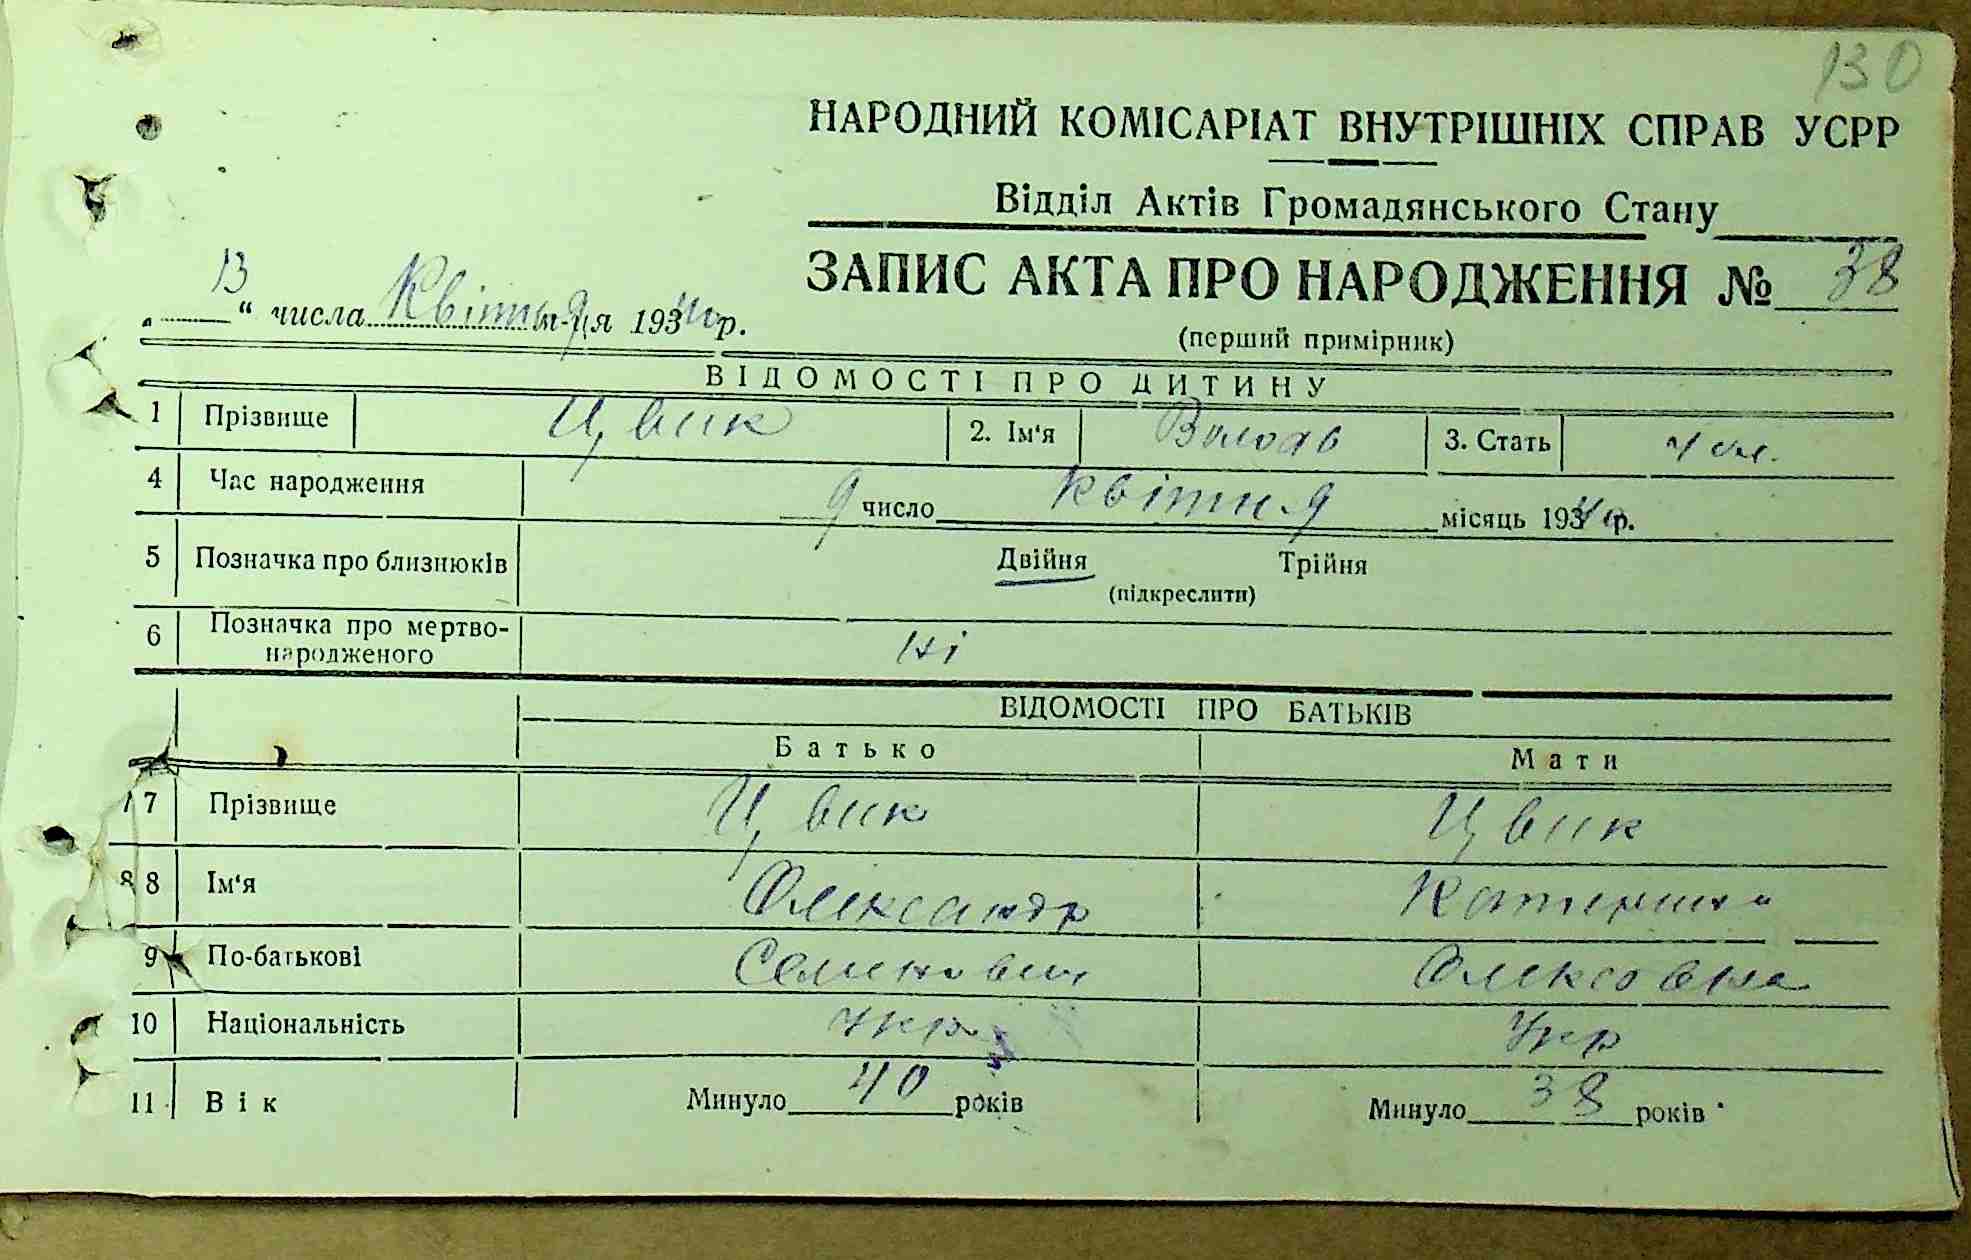 130
НАРОДНИЙ КОМІСАРІАТ ВНУТРІШНІХ СПРАВ УСРР
Відділ Актів Громадянського Стану
ЗАПИС АКТА ПРО НАРОДЖЕННЯ № 38
(перший примірник)
„13“ числа Квітня м-ця 1934 р.
ВІДОМОСТІ ПРО ДИТИНУ
1 Прізвище Цвик 2. Ім'я 3. Стать чол.
4 Час народження 9 число квітня місяць 1934 р.
5 Позначка про близнюків Двійня Трійня
(підкреслити)
6 Позначка про мертво-
народженого ні
ВІДОМОСТІ ПРО БАТЬКІВ
Батько Мати
7 Прізвище Цвик Цвик
8 8 Ім'я Олександр Катерина
9 По-батькові Семенович Олексовна
10 Національність Укр. Укр
11 Вік Минуло 40 років Минуло 38 років